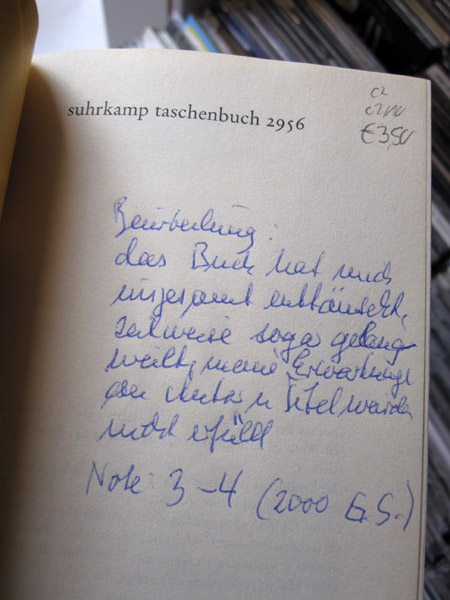 suhrkamp taschenbuch 2956
€3,50
Beurteilung:
das Buch hat mich
insgesamt enttäuscht,
zeitweise sogar gelang
weilt, meine Erwartunge
an Autor u Titel wurden
nicht erfüllt
Note 3-4 (2000 G.S.)